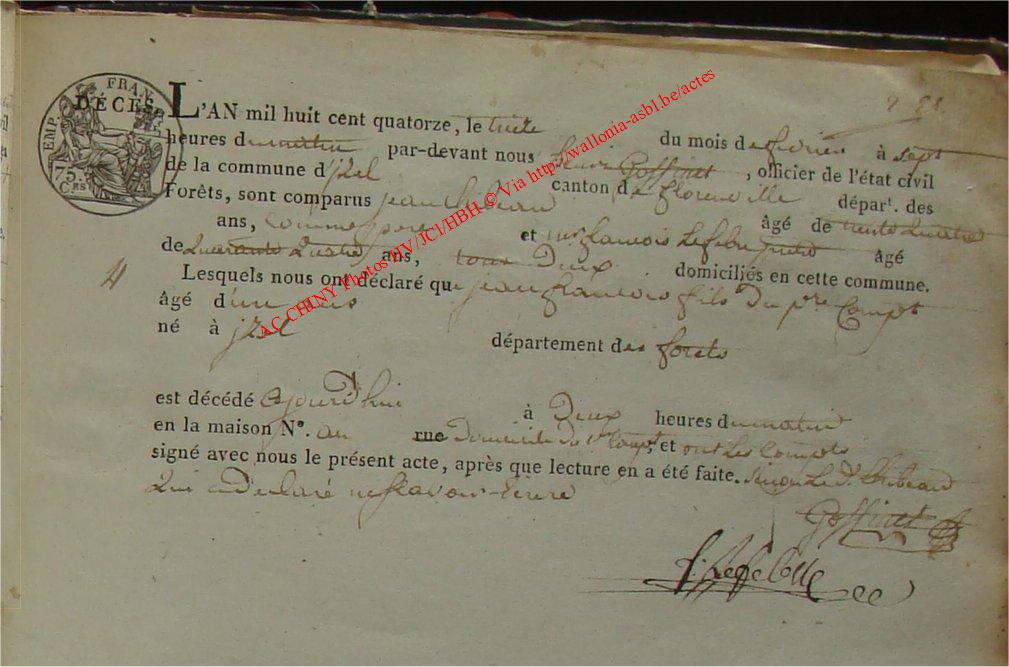 EMP. FRAN.
75. C.RS
DÉCÈS.
L'AN mil huit cent quatorze, le du mois de fevrier à sept
heures du matin par-devant nous Goffinet, officier de l'état civil
de la commune d'jzel canton de florenville dépar.t des
Forêts, sont comparus jean thibeau âgé de trente quatre
ans, comme pere et francois Lefebre âgé
de quarante quatre ans, tous Deux domiciliés en cette commune.
Lesquels nous ont déclaré que jean francois fils du p.re Comp.t
âgé d'un ans
né à jzel département des forets
est décédé ajourd'hui à Deux heures du matin
en la maison N°. au rue Domicile du comp.t et ont les Comp.ts
signé avec nous le présent acte, après que lecture en a été faite. thibeau
qui a declaré ne savoir ecrire
Goffinet
AC CHINY Photos HV/JCl/HBH © Via http://wallonia-asbl.be/actes